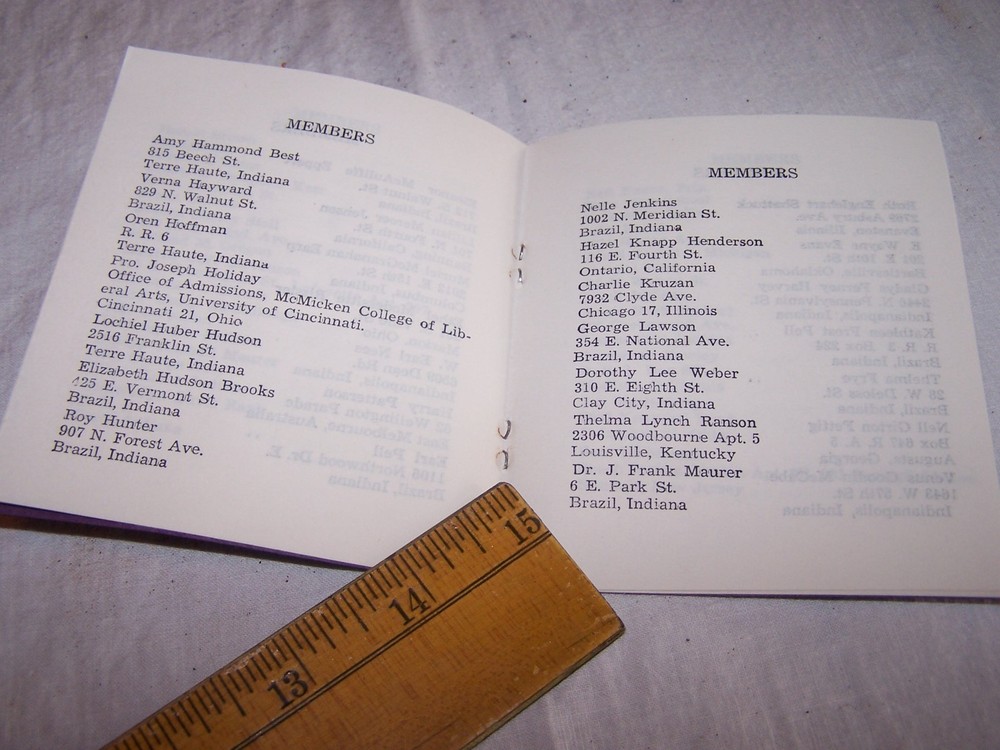 MEMBERS
Amy Hammond Best
815 Beech St.
Terre Haute, Indiana
Verna Hayward
829 N. Walnut St.
Brazil, Indiana
Oren Hoffman
R. R. 6
Terre Haute, Indiana
Pro. Joseph Holiday
Office of Admissions, McMicken College of Lib-
eral Arts, University of Cincinnati.
Cincinnati 21, Ohio
Lochiel Huber Hudson
2516 Franklin St.
Terre Haute, Indiana
Elizabeth Hudson Brooks
425 E. Vermont St.
Brazil, Indiana
Roy Hunter
907 N. Forest Ave.
Brazil, Indiana
MEMBERS
Nelle Jenkins
1002 N. Meridian St.
Brazil, Indiana
Hazel Knapp Henderson
116 E. Fourth St.
Ontario, California
Charlie Kruzan
7932 Clyde Ave.
Chicago 17, Illinois
George Lawson
354 E. National Ave.
Brazil, Indiana
Dorothy Lee Weber
310 E. Eighth St.
Clay City, Indiana
Thelma Lynch Ranson
2306 Woodbourne Apt. 5
Louisville, Kentucky
Dr. J. Frank Maurer
6 E. Park St.
Brazil, Indiana
13 14 15